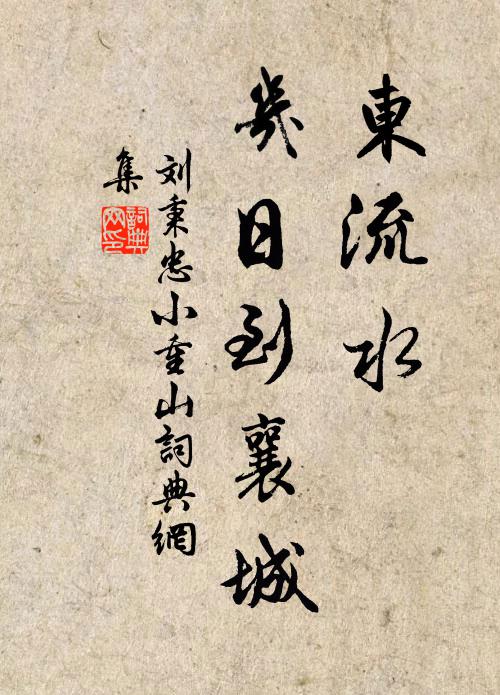 東流水
幾日到襄城
刘秉忠小重山詞典網
集
詞典網印